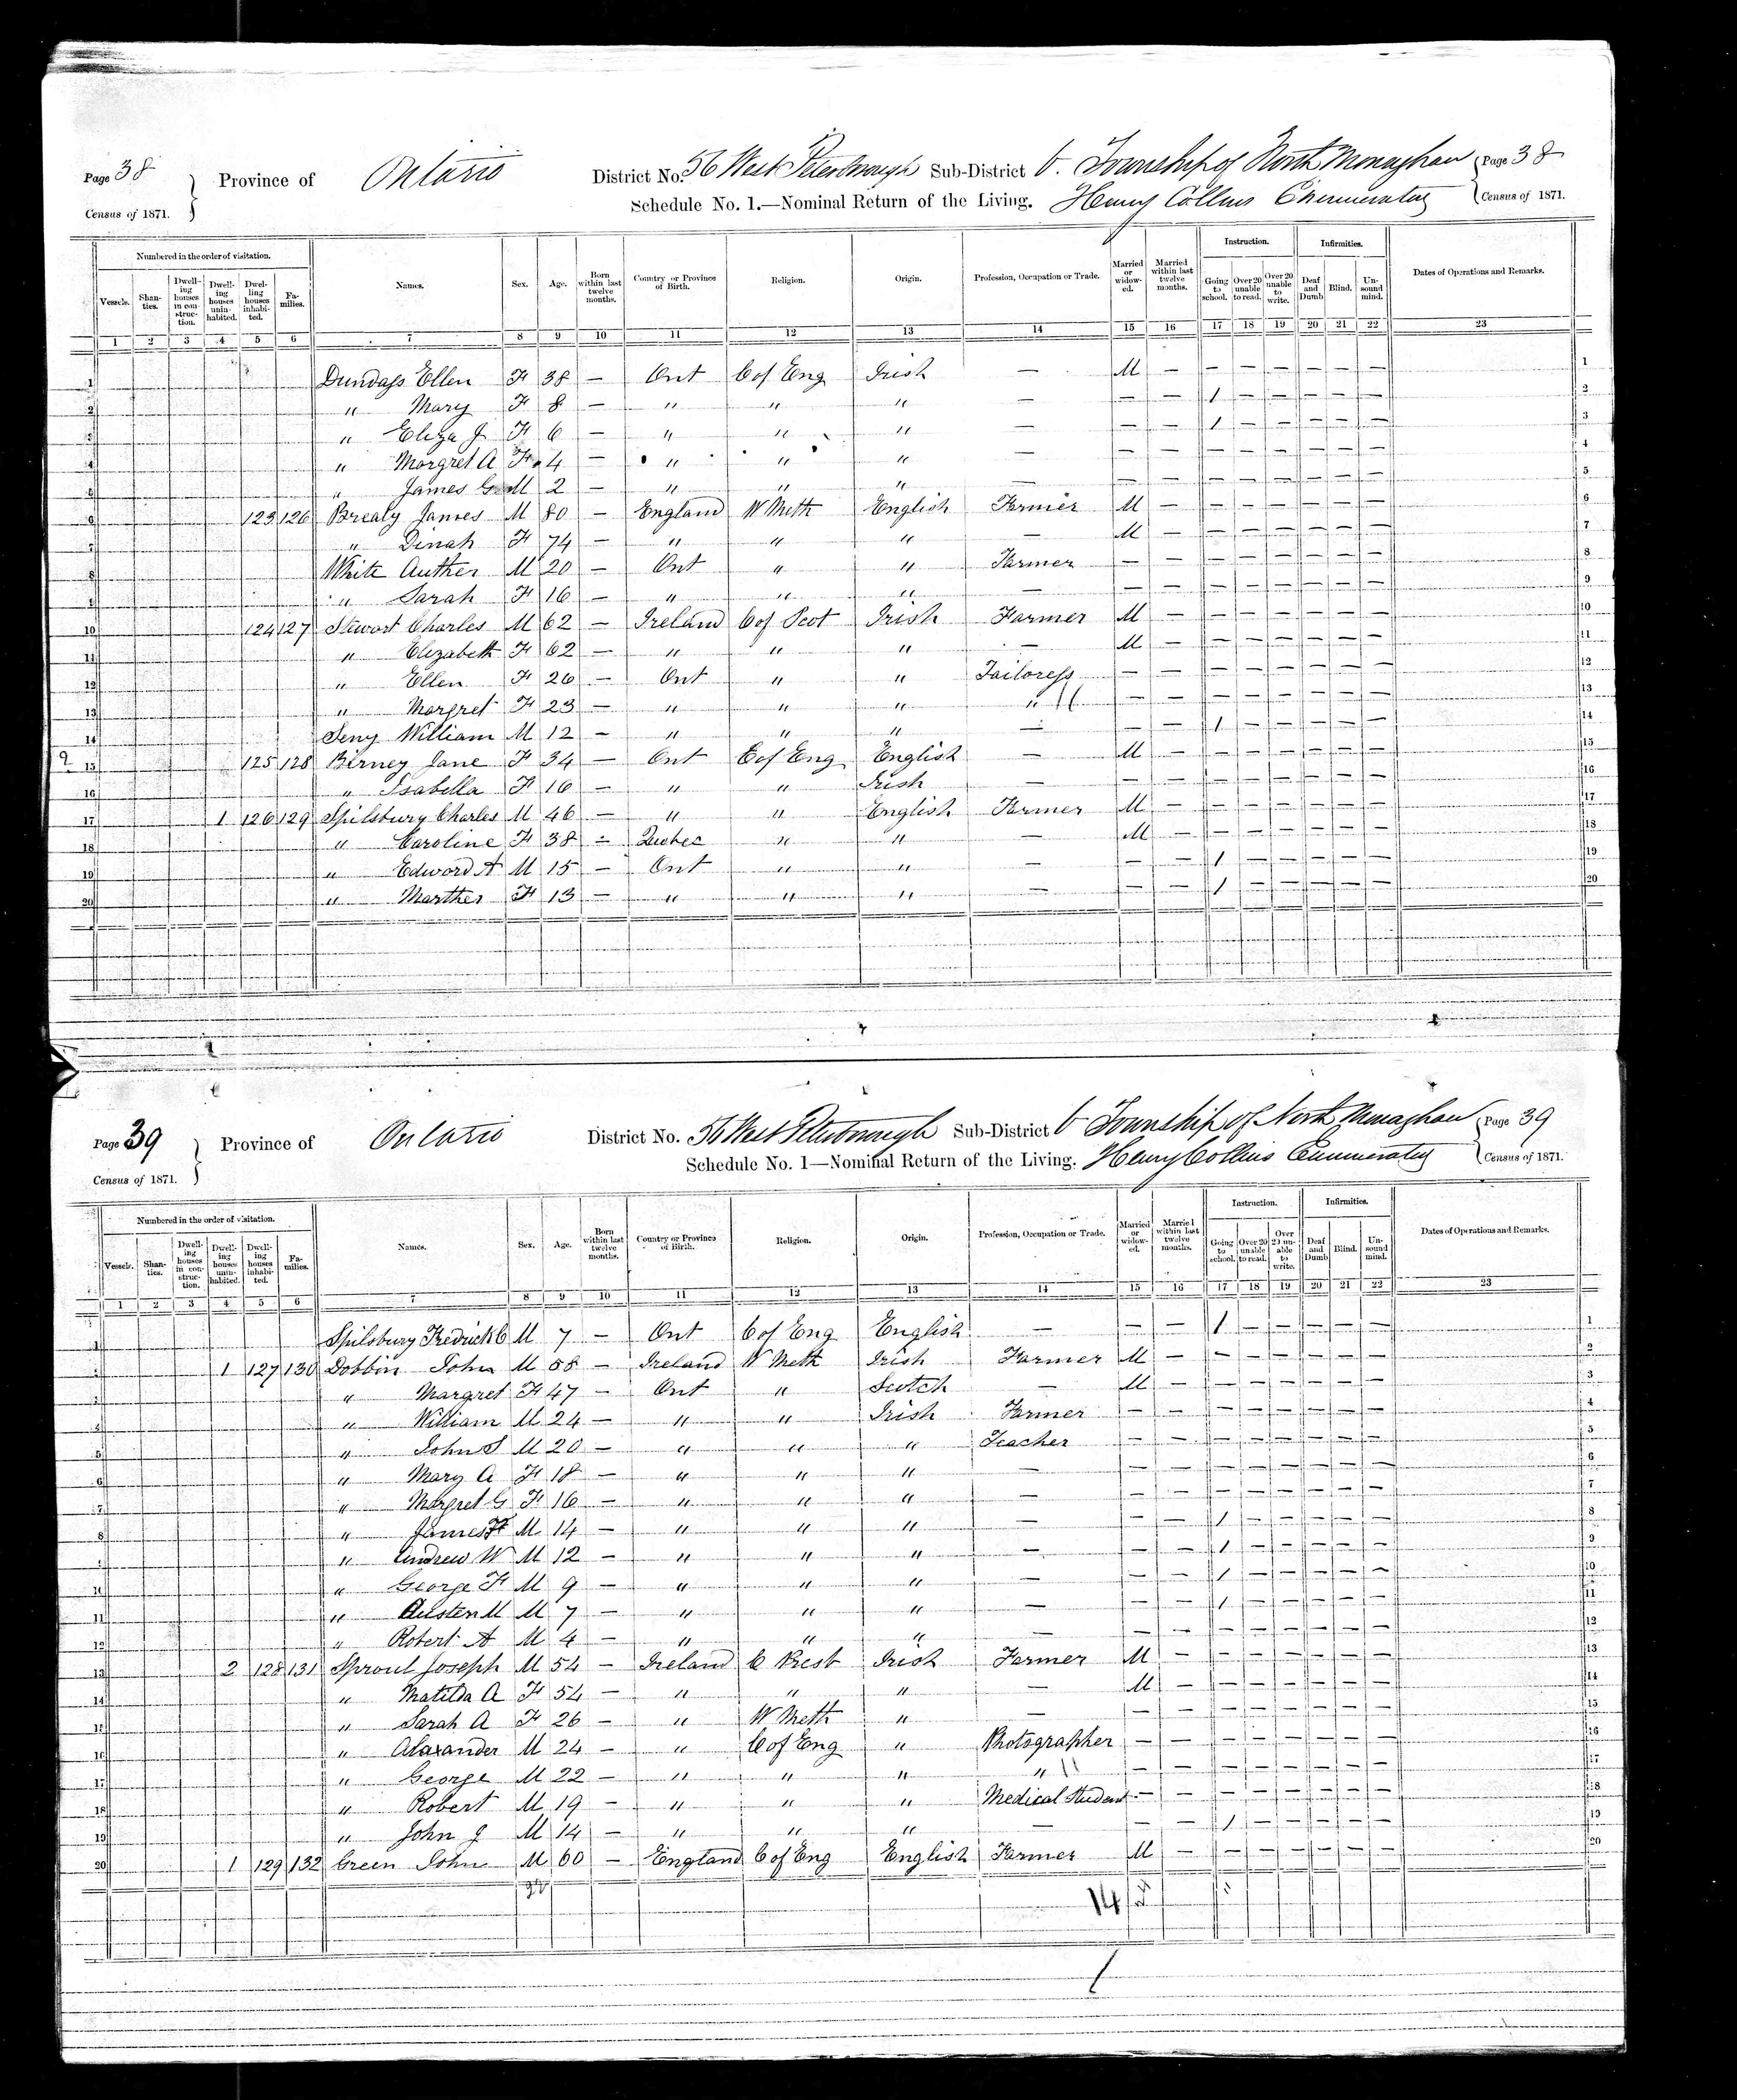 Page 38 } Province of Ontario District No. 56 West Peterborough Sub-District b. Township of North Monaghan { Page 38
Census of 1871. Schedule No. 1.—Nominal Return of the Living. Henry Collins Enumerator Census of 1871.
Numbered in the order of visitation. Names. Sex. Age. Born within last twelve months. Country or Province of Birth. Religion. Origin. Profession, Occupation or Trade. Married or widowed. Married within last twelve months. Instruction. Infirmities. Dates of Operations and Remarks.
Vessels. Shanties. Dwelling houses in construction. Dwelling houses uninhabited. Dwelling houses inhabited. Families. Going to school. Over 20 unable to read. Over 20 unable to write. Deaf and Dumb Blind. Unsound mind.
1 2 3 4 5 6 7 8 9 10 11 12 13 14 15 16 17 18 19 20 21 22 23
1 Dundass Ellen F 38 — Ont C of Eng Irish — M — — — — — — — 1
2 " Mary F 8 — " " " — — — 1 — — — — — 2
3 " Eliza J F 6 — " " " — — — 1 — — — — — 3
4 " Margret A F 4 — " " " — — — — — — — — — 4
5 " James G M 2 — " " " — — — — — — — — — 5
6 123 126 Brealy James M 80 — England W Meth English Farmer M — — — — — — — 6
7 " Dinah F 74 — " " " — M — — — — — — — 7
8 White Auther M 20 — Ont " " Farmer — — — — — — — — 8
9 " Sarah F 16 — " " " — — — — — — — — — 9
10 124 127 Stewart Charles M 62 — Ireland C of Scot Irish Farmer M — — — — — — — 10
11 " Elizabeth F 62 — " " " — M — — — — — — — 11
12 " Ellen F 26 — Ont " " Tailoress — — — — — — — — 12
13 " Margret F 23 — " " " " — — — — — — — — 13
14 Seny William M 12 — " " " — — — 1 — — — — — 14
15 125 128 Birney Jane F 34 — Ont C of Eng English — M — — — — — — — 15
16 " Isabella F 16 — " " Irish — — — — — — — — — 16
17 1 126 129 Spilsbury Charles M 46 — " " English Farmer M — — — — — — — 17
18 " Caroline F 38 — Quebec " " — M — — — — — — — 18
19 " Edward A M 15 — Ont " " — — — 1 — — — — — 19
20 " Marther F 13 — " " " — — — 1 — — — — — 20
Page 39 } Province of Ontario District No. 56 West Peterborough Sub-District b Township of North Monaghan { Page 39
Census of 1871. Schedule No. 1—Nominal Return of the Living. Henry Collins Enumerator Census of 1871.
Numbered in the order of visitation. Names. Sex. Age. Born within last twelve months. Country or Province of Birth. Religion. Origin. Profession, Occupation or Trade. Married or widowed. Married within last twelve months. Instruction. Infirmities. Dates of Operations and Remarks.
Vessels. Shanties. Dwelling houses in construction. Dwelling houses uninhabited. Dwelling houses inhabited. Families. Going to school. Over 20 unable to read. Over 20 unable to write. Deaf and Dumb Blind. Unsound mind.
1 2 3 4 5 6 7 8 9 10 11 12 13 14 15 16 17 18 19 20 21 22 23
1 Spilsbury Fredrick C M 7 — Ont C of Eng English — — — 1 — — — — — 1
2 1 127 130 Dobbin John M 58 — Ireland W Meth Irish Farmer M — — — — — — — 2
3 " Margret F 47 — Ont " Scotch — M — — — — — — — 3
4 " William M 24 — " " Irish Farmer — — — — — — — — 4
5 " John S M 20 — " " " Teacher — — — — — — — — 5
6 " Mary A F 18 — " " " — — — — — — — — — 6
7 " Margret G F 16 — " " " — — — — — — — — — 7
8 " James F M 14 — " " " — — — 1 — — — — — 8
9 " Andrew W M 12 — " " " — — — 1 — — — — — 9
10 " George F M 9 — " " " — — — 1 — — — — — 10
11 " Austen M M 7 — " " " — — — 1 — — — — — 11
12 " Robert A M 4 — " " " — — — — — — — — — 12
13 2 128 131 Sproul Joseph M 54 — Ireland C Presb Irish Farmer M — — — — — — — 13
14 " Matilda A F 54 — " " " — M — — — — — — — 14
15 " Sarah A F 26 — " W Meth " — — — — — — — — — 15
16 " Alaxander M 24 — " C of Eng " Photographer — — — — — — — — 16
17 " George M 22 — " " " " — — — — — — — — 17
18 " Robert M 19 — " " " Medical Student — — — — — — — — 18
19 " John J M 14 — " " " — — — 1 — — — — — 19
20 1 129 132 Green John M 60 — England C of Eng English Farmer M — — — — — — — 20
14